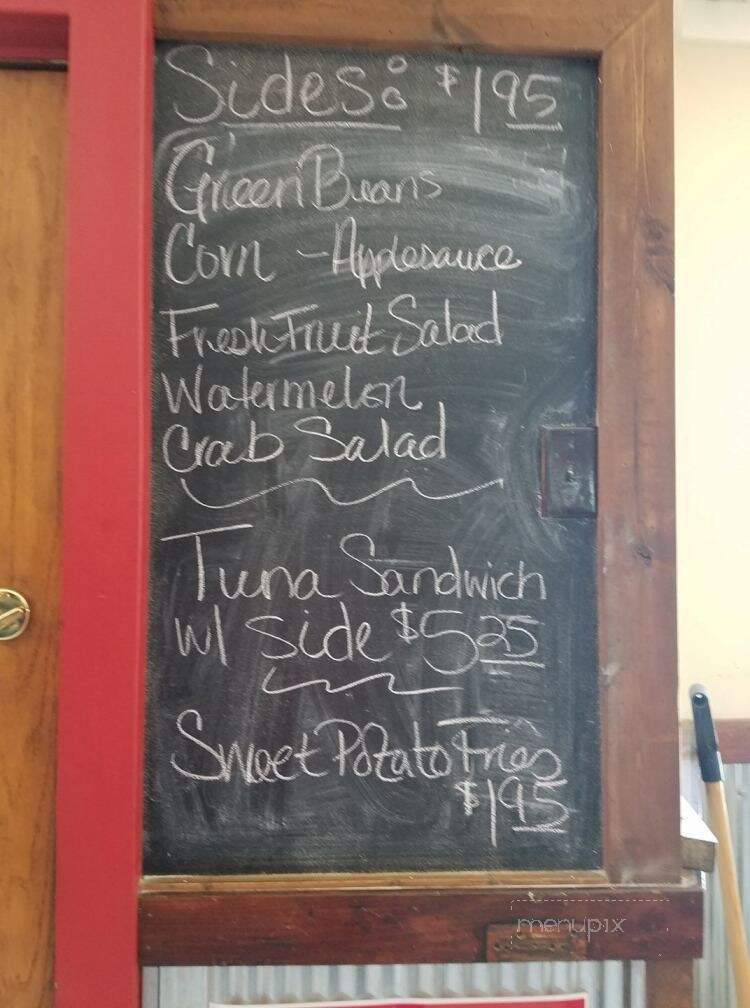 Sides: $1.95
Green Beans
Corn - Applesauce
Fresh Fruit Salad
Watermelon
Crab Salad
Tuna Sandwich
w/ side $5.25
Sweet Potato Fries
$1.95
menupix